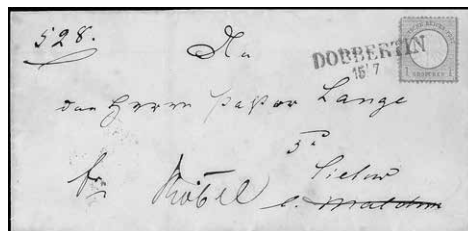 528.
An
DOBBERTIN
15 7
den Herrn Pastor Lange
Sietow
fr. Röbel